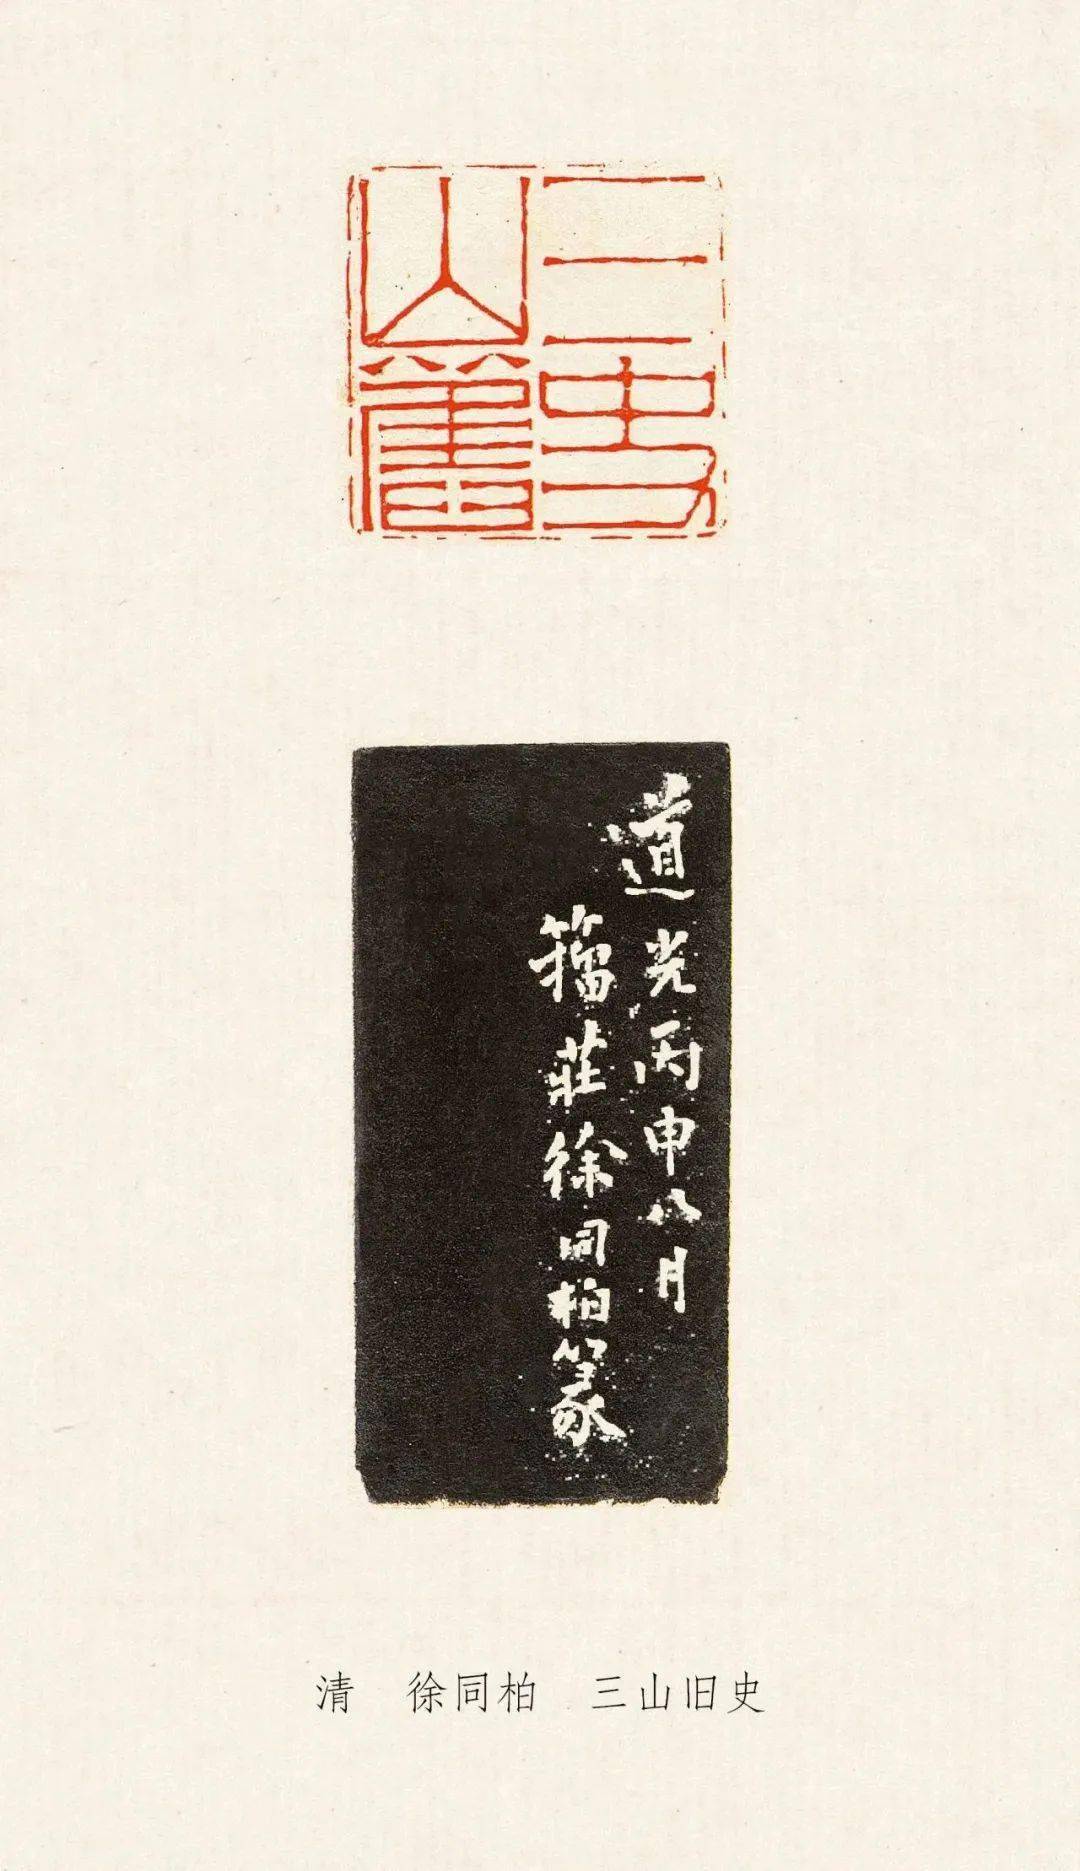 三山舊史
道光丙申八月
籀莊徐同柏篆
清 徐同柏 三山旧史